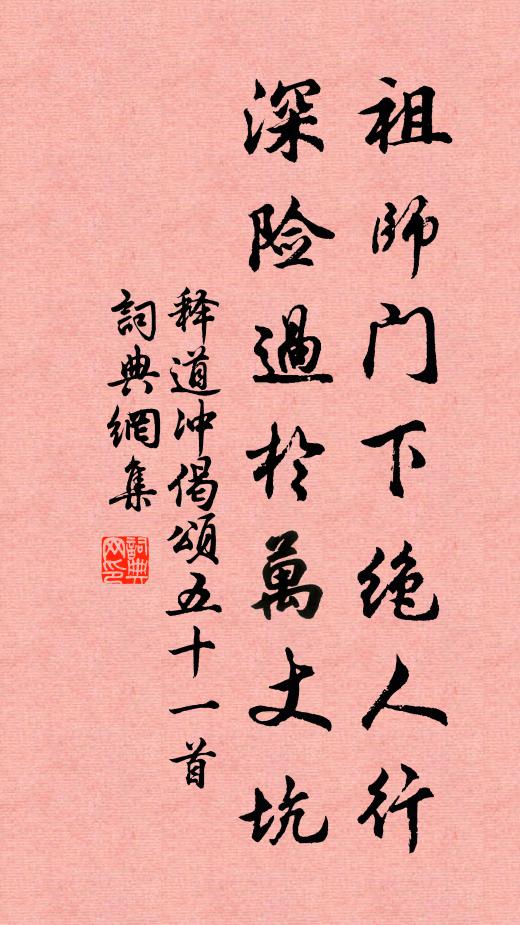 祖師门下绝人行
深险過於萬丈坑
释道冲偈頌五十一首
詞典網集
詞典网印